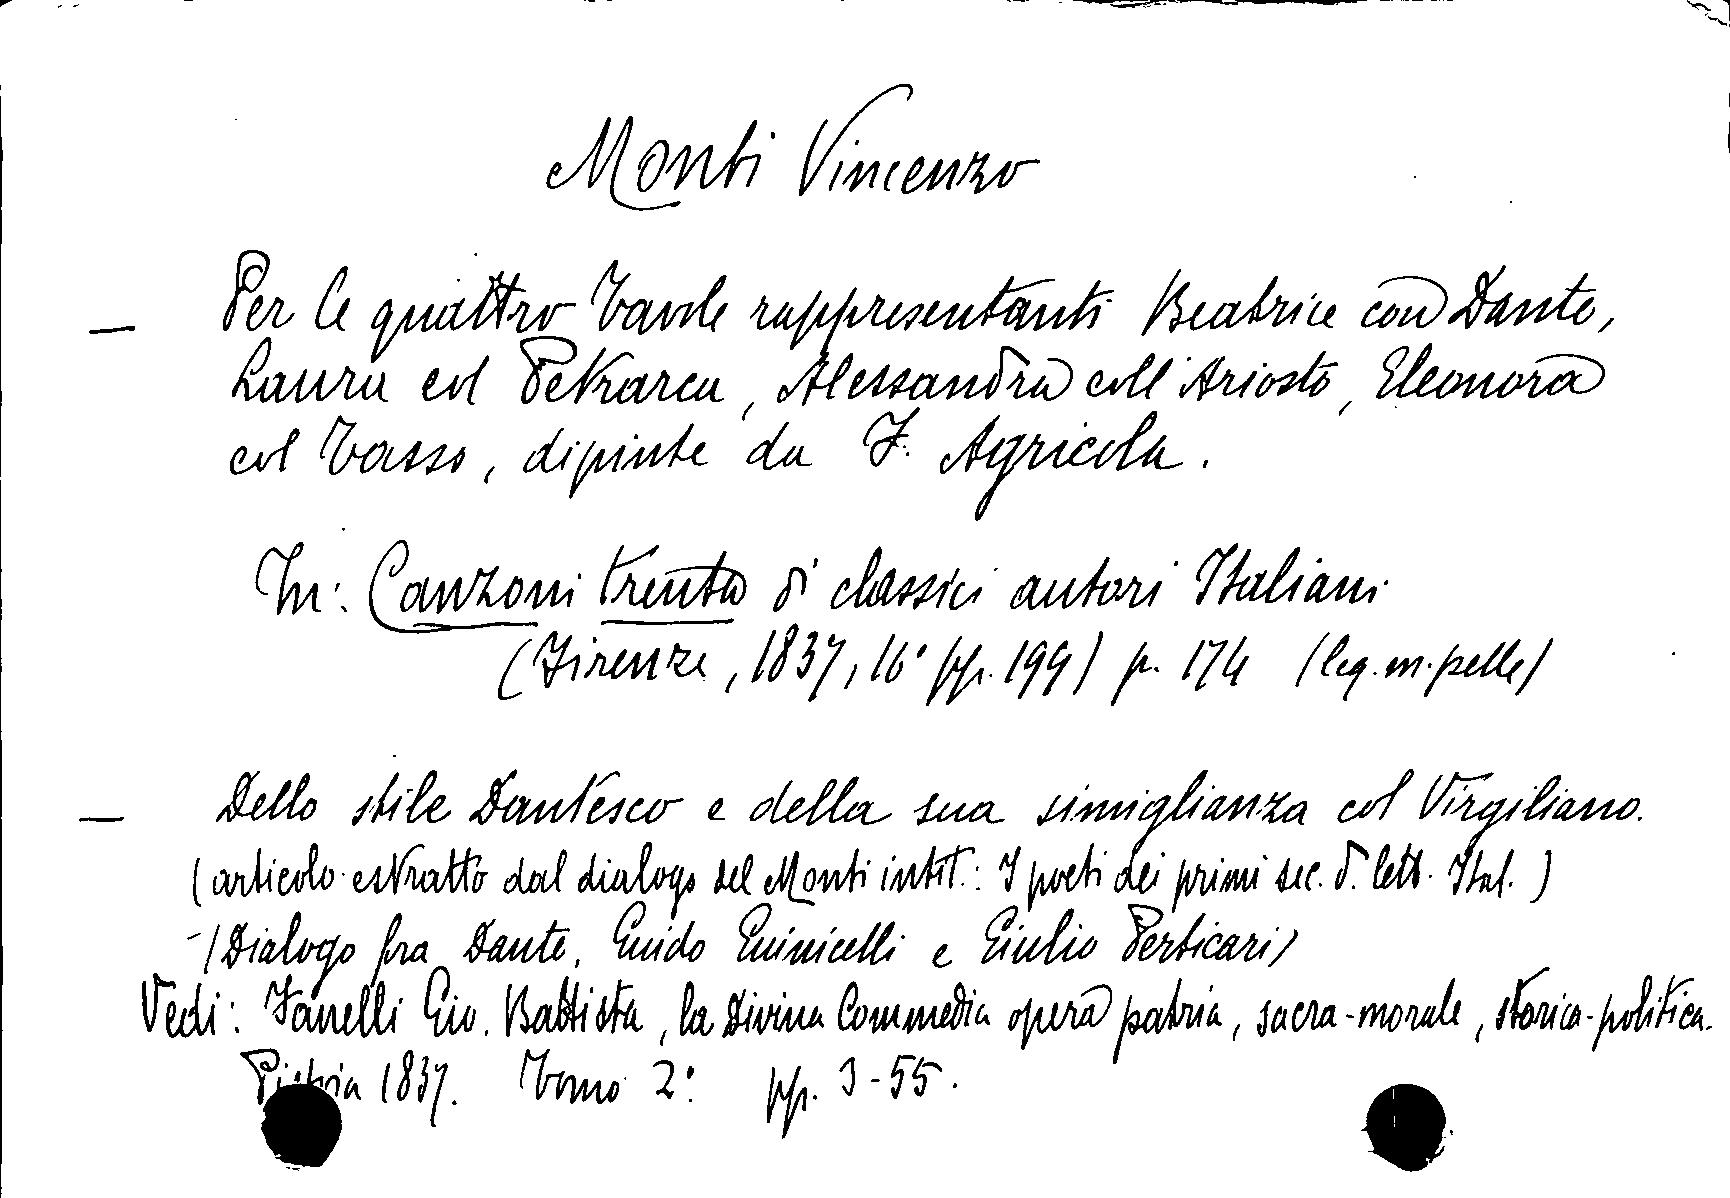 Monti Vincenzo
— Per le quattro tavole rappresentanti Beatrice con Dante,
Laura col Petrarca, Alessandra coll'Ariosto, Eleonora
col Tasso, dipinte da F. Agricola.
In: Canzoni trenta di classici autori Italiani
(Firenze, 1837, 16° pp. 199) p. 174 (leg. m. pelle)
— Dello stile Dantesco e della sua simiglianza col Virgiliano.
(articolo estratto dal dialogo del Monti intit.: I poeti dei primi sec. d. lett. Ital.)
- (Dialogo fra Dante, Guido Guinicelli e Giulio Perticari)
Vedi: Fanelli Gio. Battista, la Divina Commedia opera patria, sacra-morale, storica-politica.
Pistoia 1837. Tomo 2° pp. 3-55.